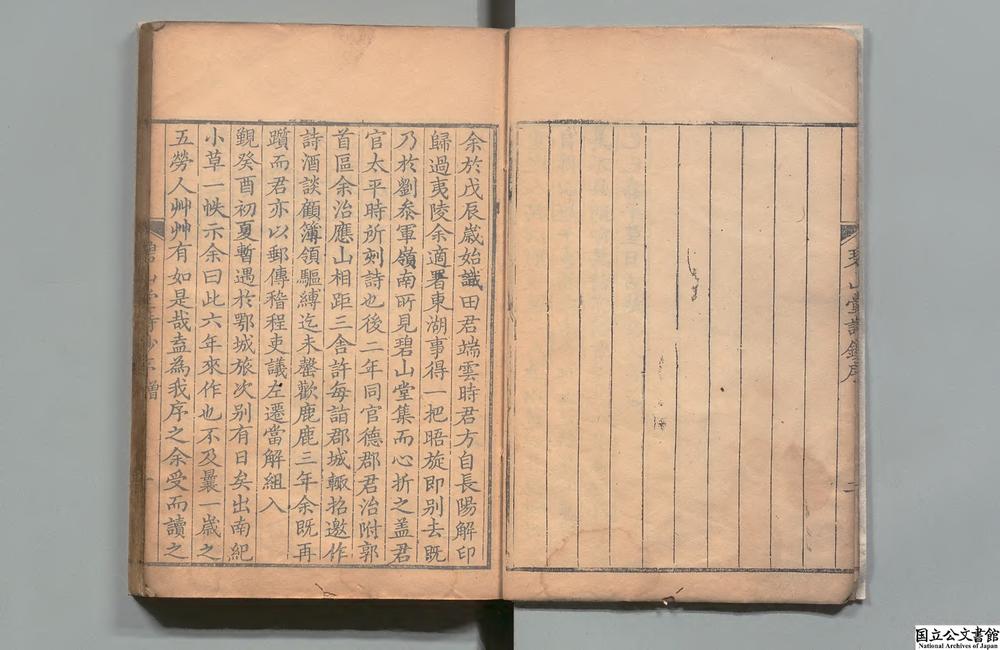 碧山堂詩鈔序
二
余於戊辰歲始識田君端雲時君方自長陽解印
歸過夷陵余適署東湖事得一把晤旋即別去既
乃於劉叅軍嶺南所見碧山堂集而心折之盖君
官太平時所刻詩也後二年同官德郡君治附郭
首區余治應山相距三舍許每詣郡城輙招邀作
詩酒談顧簿領驅縛迄未罄歡鹿鹿三年余既再
躓而君亦以郵傳稽程吏議左遷當解組入
覲癸酉初夏暫遇於鄂城旅次別有日矣出南紀
小草一帙示余曰此六年來作也不及曩一歲之
五勞人艸艸有如是哉盍為我序之余受而讀之
一
国立公文書館
National Archives of Japan